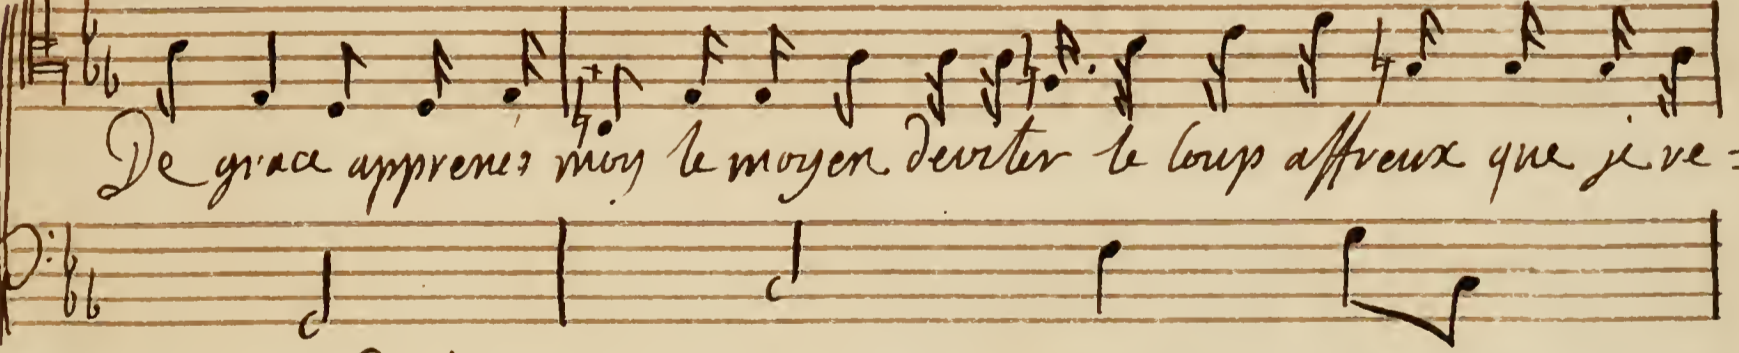 De grace apprenés moy le moyen deviter le loup affreux que je re=